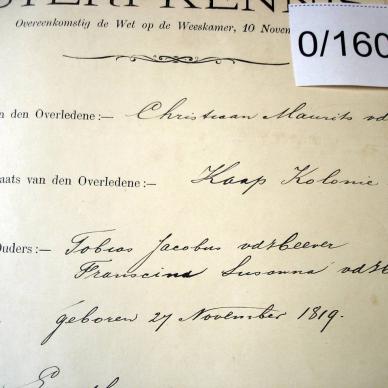 Overeenkomstig de Wet op de Weeskamer, 10 Novem
0/160
en Overledene:— Christiaan Maurits vd
aats van den Overledene:— Kaap Kolonie
Ouders:— Tobias Jacobus vdHeever
Franscina Susanna vdH
geboren 27 November 1819.